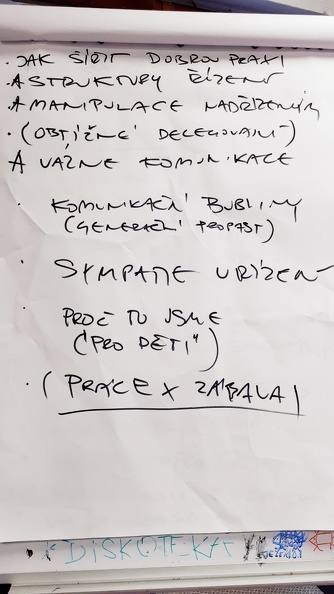 · JAK ŠÍŘIT DOBROU PRAXI
· A STRUKTURY ŘÍZENÍ
· A MANIPULACE NADŘÍZENÝM
· (OBTÍŽNÉ DELEGOVÁNÍ)
A VÁZNE KOMUNIKACE
· KOMUNIKAČNÍ BUBLINY
(GENERAČNÍ PROPAST)
· SYMPATIE V ŘÍZENÍ
· PROČ TU JSME
("PRO DĚTI")
· (PRÁCE X ZÁBAVA)
DISKOTÉKA